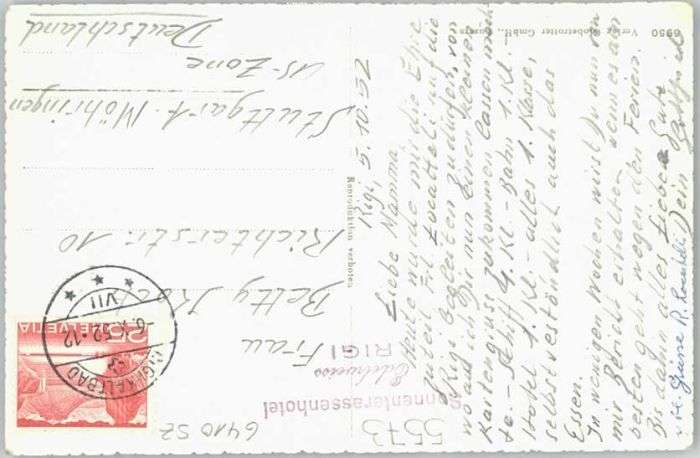 6950 Verlag Globetrotter GmbH., Luzern
Reproduktion verboten
Rigi, 5.10.52
Liebe Mamma,
Heute wurde mir die Ehre
zuteil Frl. Locatteli auf die
Rigi begleiten zu dürfen, von
wo aus ich Dir nun einen kleinen
Kartengruss zukommen lassen möch-
te. - Schiff 1. Kl. - Bahn 1. Kl.
Hotel 1. Kl. - alles 1. Klasse,
selbstverständlich auch das
Essen.
In wenigen Wochen wirst Du nun von
mir Bericht erhalten wenn es am
besten geht wegen den Ferien.
Bis dahin alles Liebe &
Dein
Frau
Betty
Richterstr. 10
Stuttgart-Möhringen
US-Zone
Deutschland
HELVETIA
25
RIGI KALTBAD
6.X.52-12
VII
Sonnenterassenhotel
Edelweiss
RIGI
5573
6410 SZ